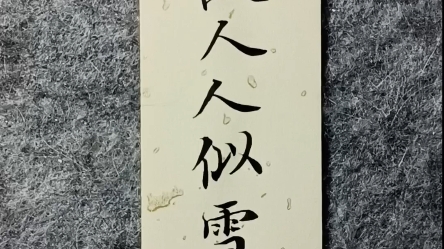 人人似雪